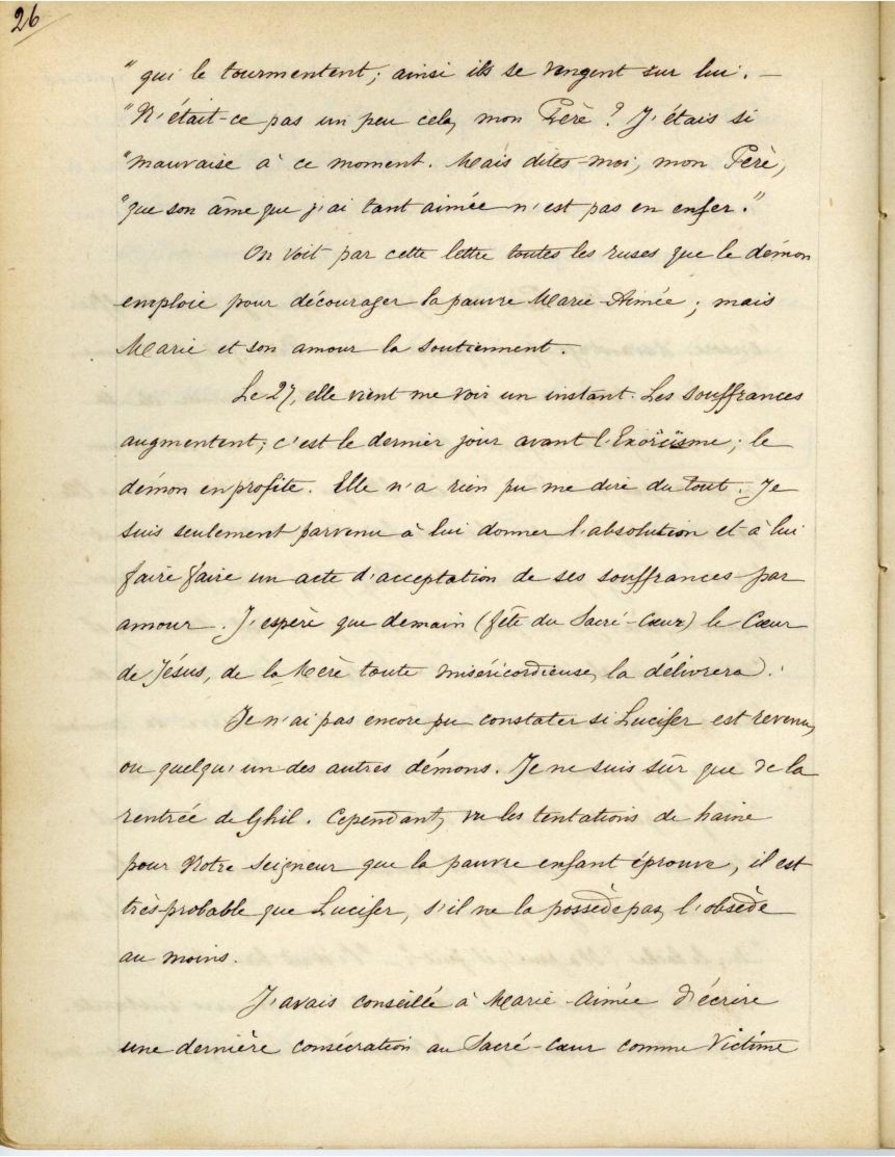 26
" qui le tourmentent ; ainsi ils se vengent sur lui. —
"N'était-ce pas un peu cela, mon Père ? J'étais si
"mauvaise à ce moment. Mais dites-moi, mon Père,
"que son âme que j'ai tant aimée n'est pas en enfer."
On voit par cette lettre toutes les ruses que le démon
emploie pour décourager la pauvre Marie-Aimée ; mais
Marie et son amour la soutiennent.
Le 27, elle vient me voir un instant. Les souffrances
augmentent ; c'est le dernier jour avant l'Exorcisme ; le
démon en profite. Elle n'a rien pu me dire du tout. Je
suis seulement parvenu à lui donner l'absolution et à lui
faire faire un acte d'acceptation de ses souffrances par
amour. J'espère que demain (fête du Sacré-Cœur) le Cœur
de Jésus, de la Mère toute miséricordieuse, la délivrera.
Je n'ai pas encore pu constater si Lucifer est revenu,
ou quelqu'un des autres démons. Je ne suis sûr que de la
rentrée de Ghil. Cependant, vu les tentations de haine
pour Notre Seigneur que la pauvre enfant éprouve, il est
très probable que Lucifer, s'il ne la possède pas, l'obsède
au moins.
J'avais conseillé à Marie-Aimée d'écrire
une dernière consécration au Sacré-Cœur comme Victime